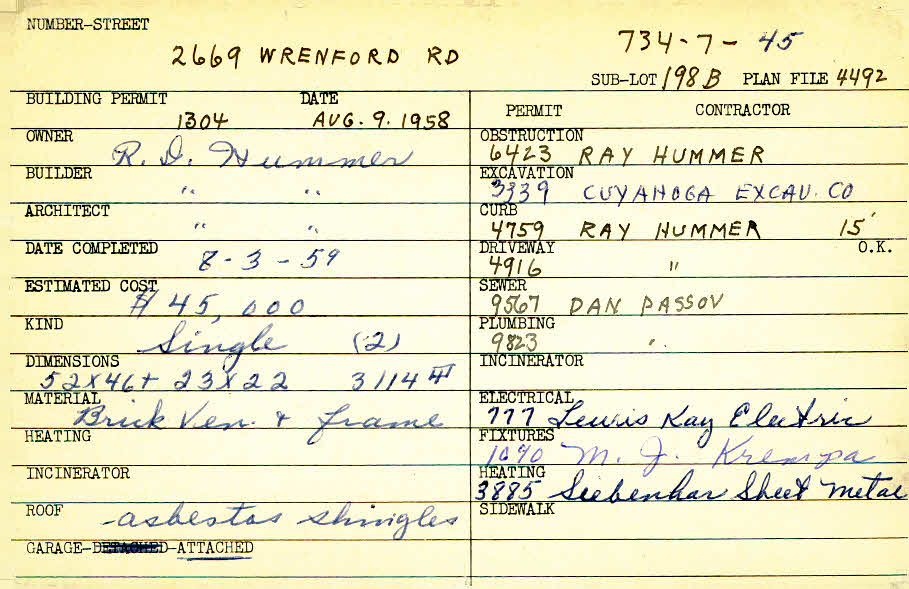 NUMBER-STREET
2669 WRENFORD RD
734-7-45
SUB-LOT 198B PLAN FILE 4492
BUILDING PERMIT DATE
1304 AUG. 9. 1958
OWNER
R. D. Hummer
BUILDER
" "
ARCHITECT
" "
DATE COMPLETED
8-3-59
ESTIMATED COST
$45,000
KIND
Single (2)
DIMENSIONS
52x46+ 23x22 3114
MATERIAL
Brick Ven. + frame
HEATING
INCINERATOR
ROOF
-asbestos shingles
GARAGE-DETACHED-ATTACHED
PERMIT CONTRACTOR
OBSTRUCTION
6423 RAY HUMMER
EXCAVATION
3339 CUYAHOGA EXCAV. CO
CURB
4759 RAY HUMMER 15'
DRIVEWAY O.K.
4916 "
SEWER
9567 DAN PASSOV
PLUMBING
9823 "
INCINERATOR
ELECTRICAL
777 Lewis Kay Electric
FIXTURES
1070 M. J. Krempa
HEATING
3885 Siebenhar Sheet Metal
SIDEWALK